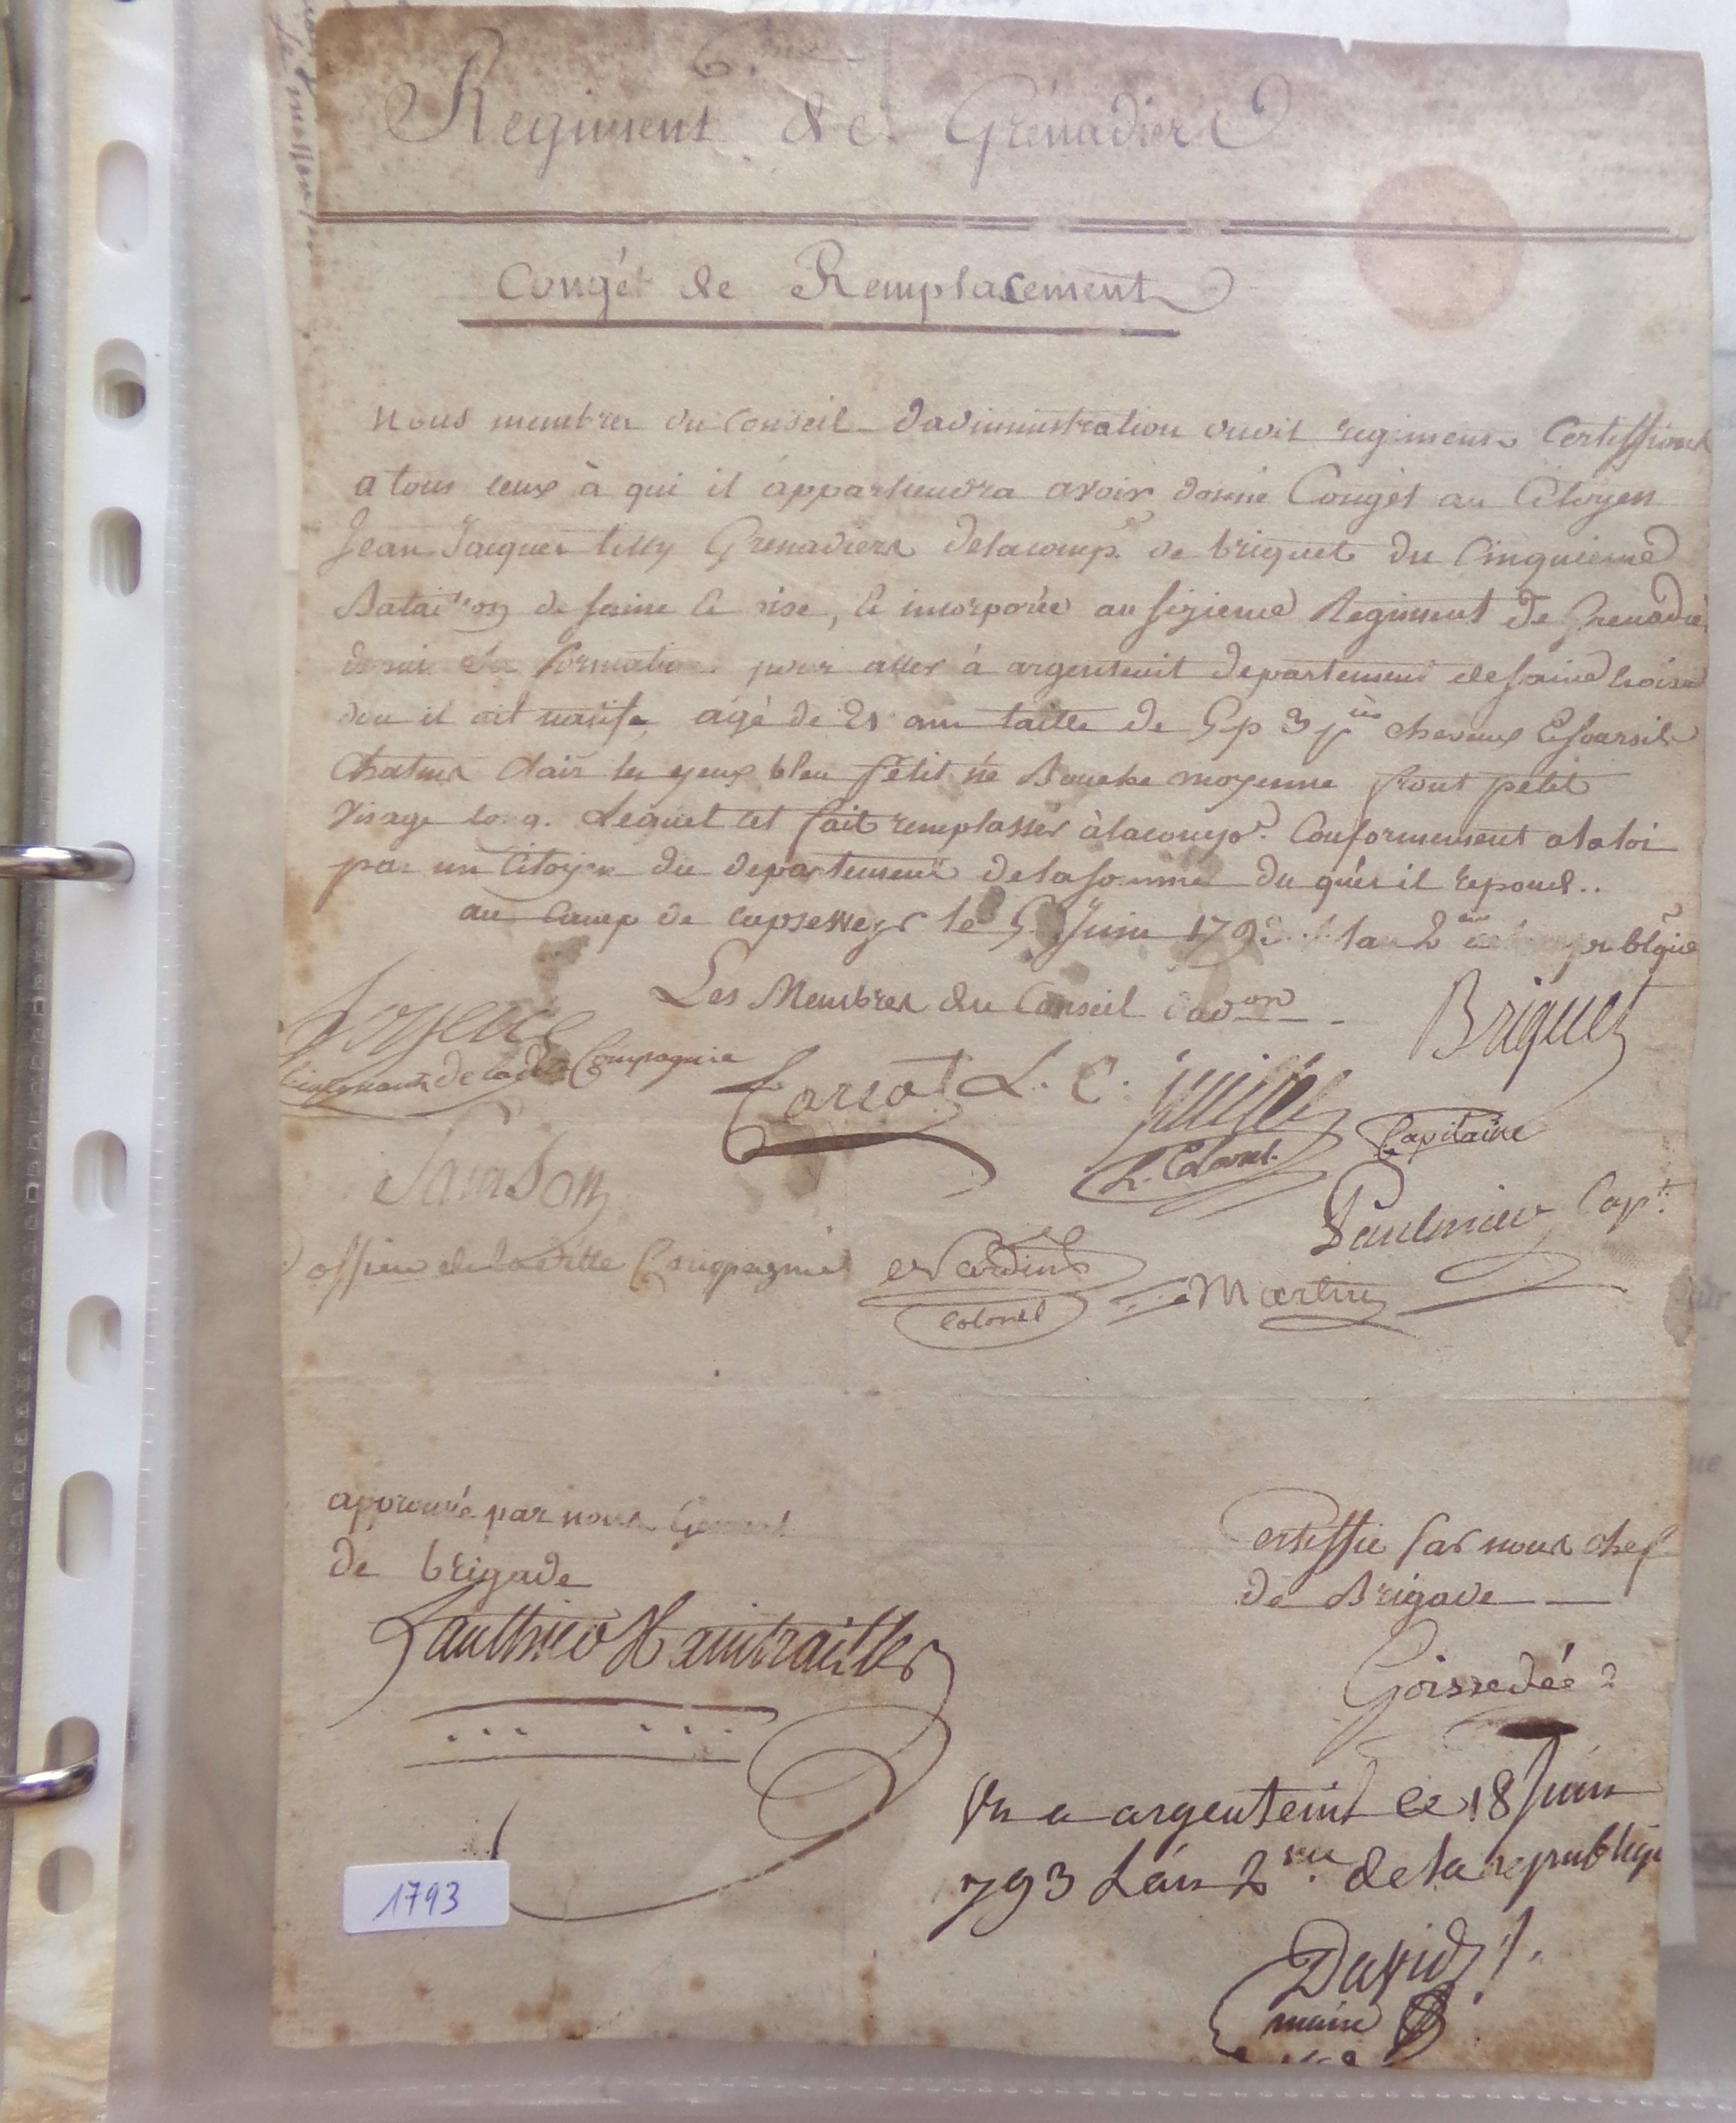 6.me
Regiment de Grénadiers
Congét de Remplacement
Nous membres du Conseil dadministration dudit regimens Certiffions
a tous ceux à qui il áppartiendra avoir donné Congét au Citoyen
Jean Jacques Grenadiers delacomp. de briquet du Cinquieme
Bataillon de Saine & oise, & incorporée au sizieme Regiment de Grenadie
sa formation pour aller á argenteuil departement de Saine
dou il ait natife, agé de 21 ans taille de 5 p 3 p.ces cheveux & soursils
Chatins clair les yeux bleu petit né Bouche moyenne front petit
Visage long. Lequel cet fait remplasser àlacomp.e Conformement alaloi
par un Citoyen du departement delasomme du qu'el il repond..
au Camp de le 5 Juin 1793 lan 2 republqie
Les Membres du Conseil dad.on
Briquet
Lieutenant de ladte Compagnie
L. C.
L. Colonel.
Capitaine
Samson
Paulmier Capt.
officier de laditte Compagnie
Colonel
Martin
approuvé par nous General
de brigade
Certiffie par nous chef
de Brigade
Gauthier Xaintrailles
Vu a argenteuil ce 18 Juin
1793 Lán 2me de la republiqu
David
maire
1793